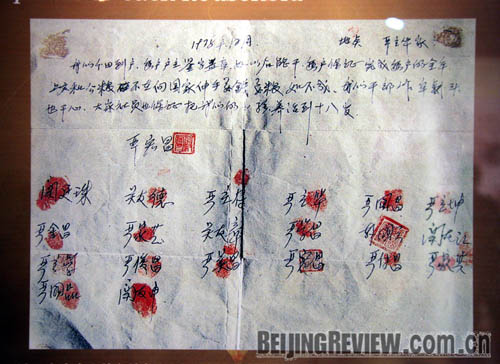 1978年12月 地点 严立华家
我们分田到户,每户户主签字盖章,如以后能干,每户保证完成每户的全年
上交和公粮 不在向国家伸手要钱要粮,如不成,我们干部作牢刹头
也干心,大家社员也保证把我们的小孩养活到十八岁
严宏昌
关廷珠 关友德 严立付 严立华 严国昌 严立坤
严金昌 严家芝 关友章 严学昌 韩国云 关友江
严立学 严俊昌 严美昌 严宏昌 严付昌 严家其
严国品 关友申
BEIJINGREVIEW.com.cn